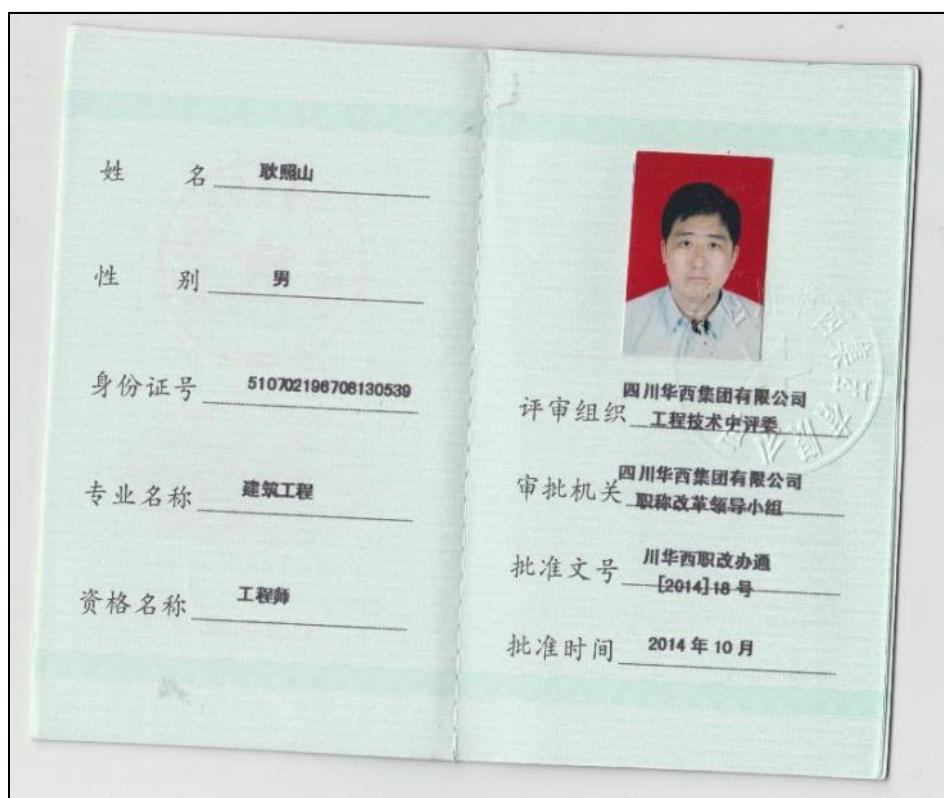 姓 名 耿照山
性 别 男
身份证号 510702196708130539
专业名称 建筑工程
资格名称 工程师
评审组织 四川华西集团有限公司
工程技术中评委
审批机关 四川华西集团有限公司
职称改革领导小组
批准文号 川华西职改办通
[2014]18 号
批准时间 2014 年 10 月